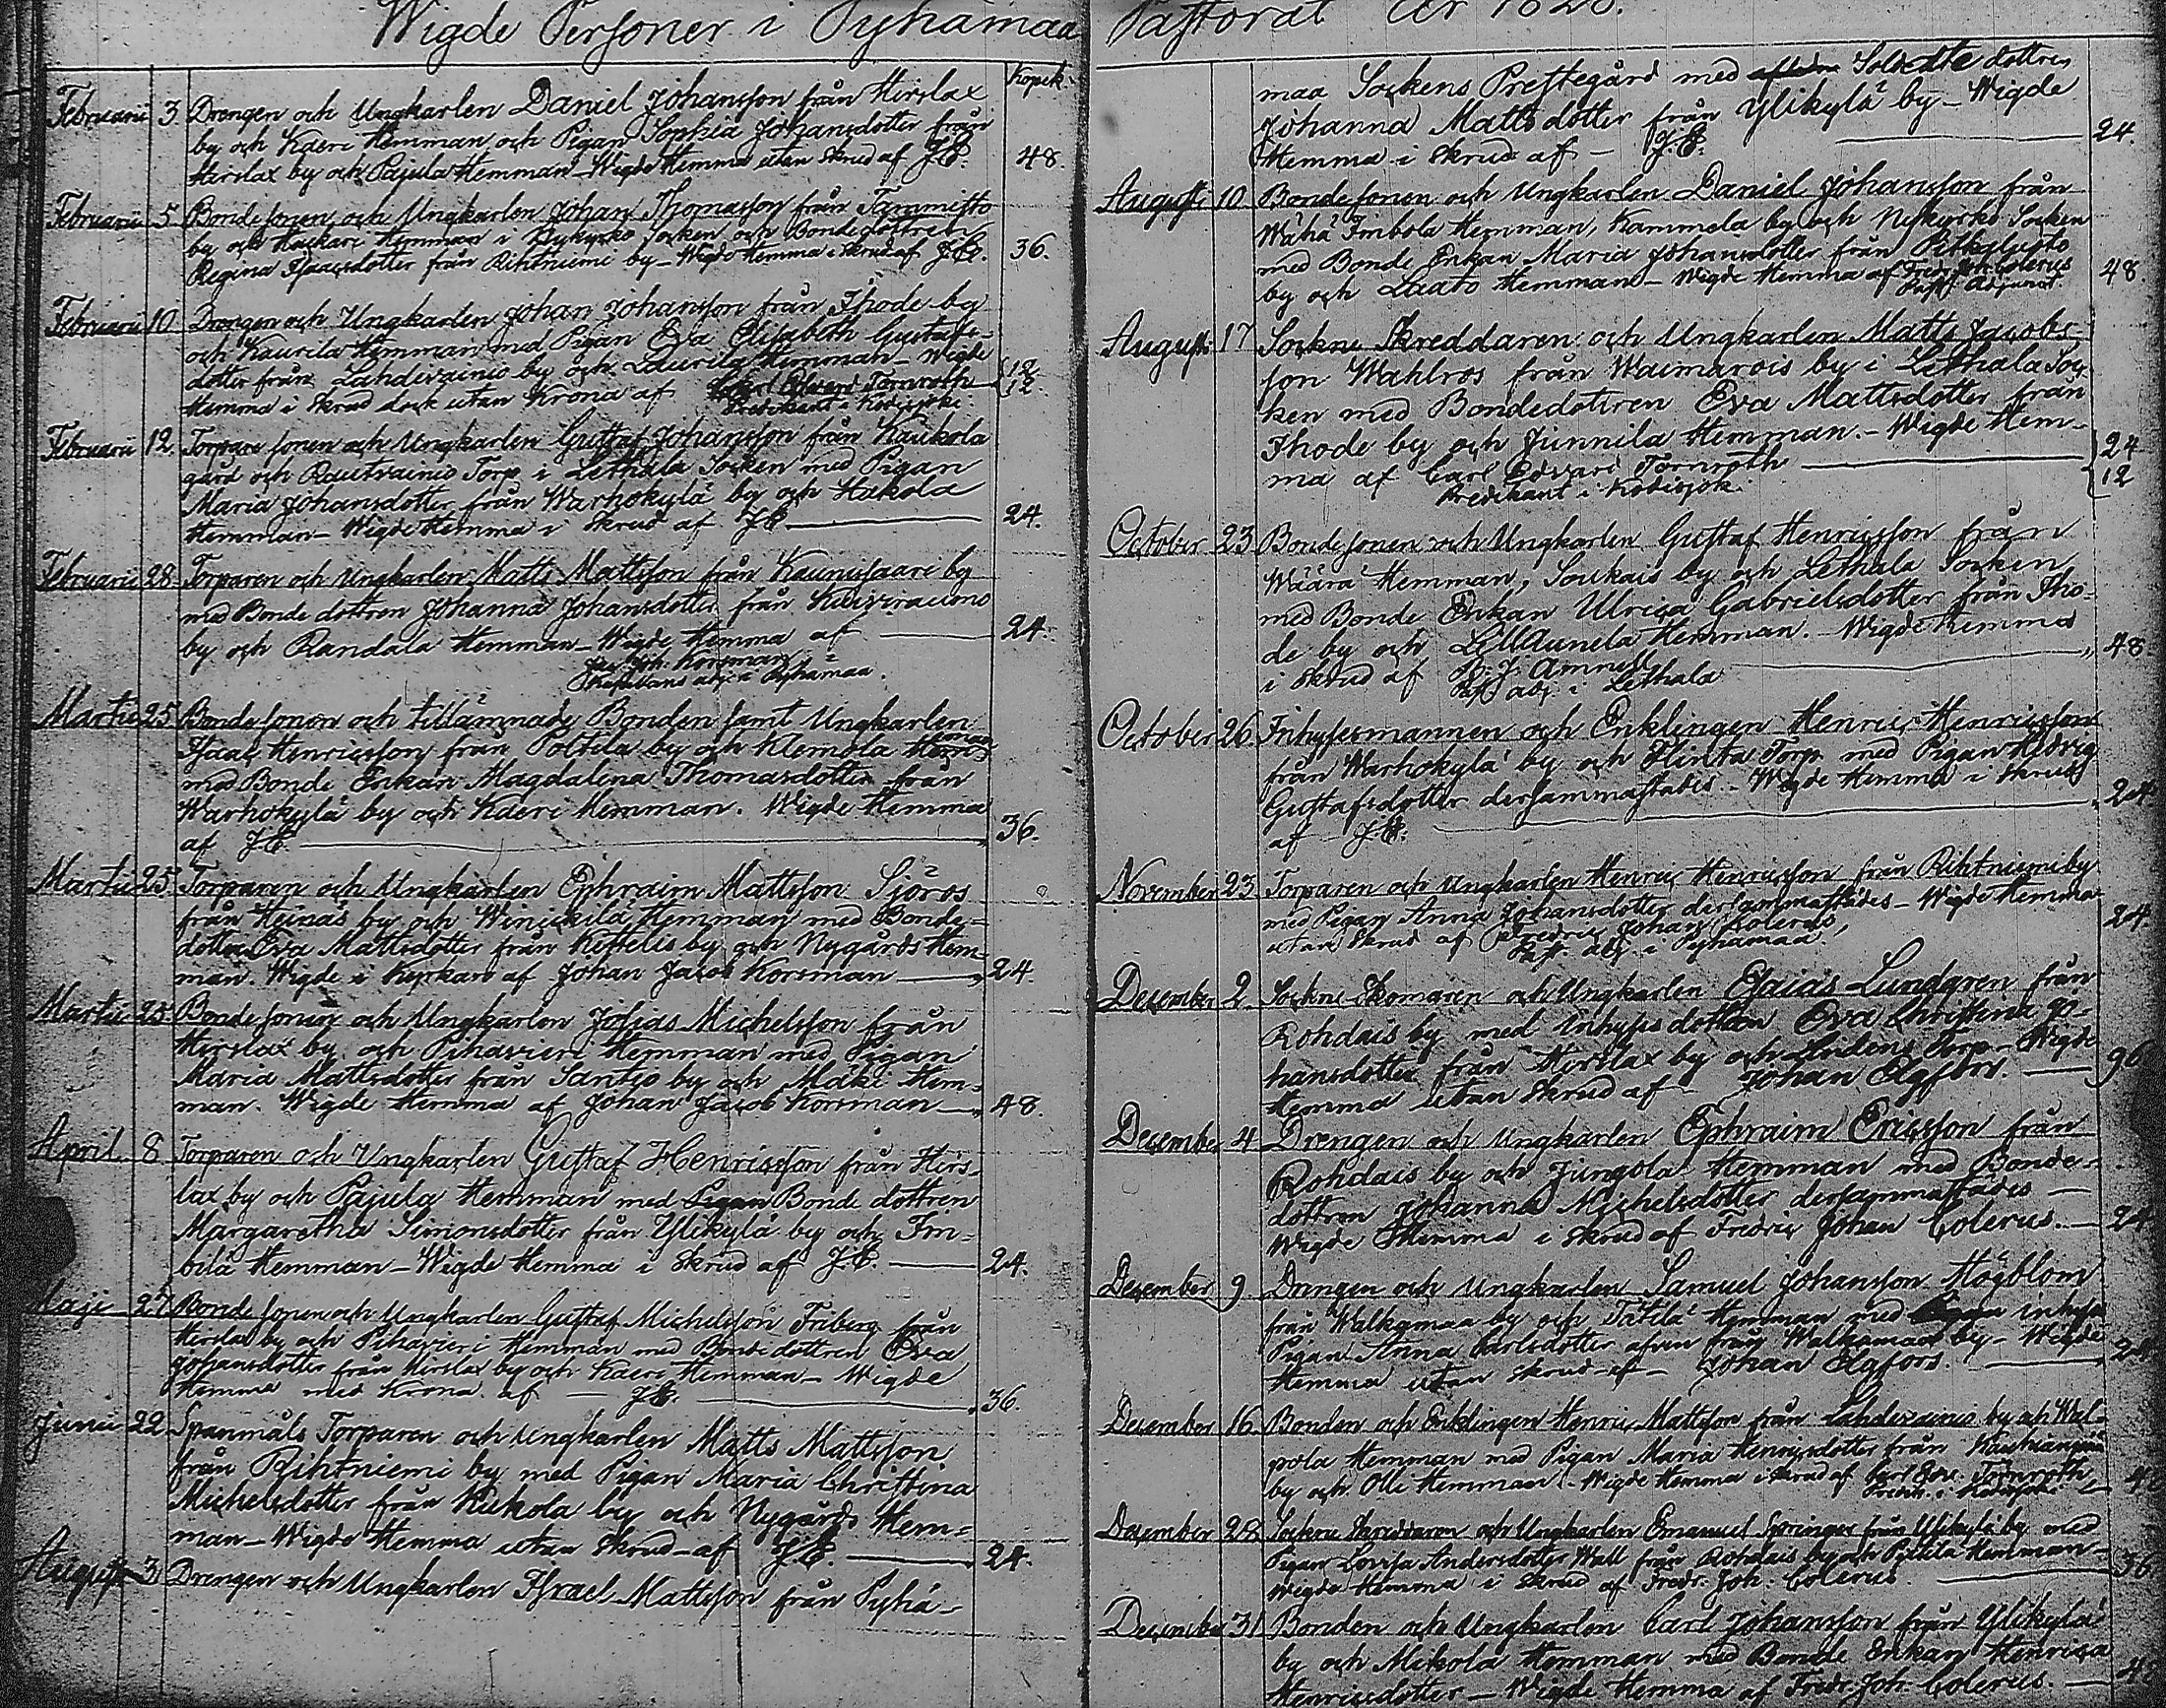 Wigde Personer i Pyhämaa Pastorat år
Kopek.
Februarii 3 Drengen och Ungkarlen Daniel Johansson från Hirslax
by och Kaeri Hemman och Pigan Sophia Johansdotter från
Hirslax by och Pajula Hemman – Wigde Hemma utan skrud af J.E. 48.
Februarii 5 Bondesonen och Ungkarlen Johan Thomasson från Tammisto
by och Hemman i Nykyrko Socken och Bondedottren
Regina Isaacsdotter från Rihtniemi by – Wigde Hemma i skrud af J.E. 36.
Februarii 10 Drengen och Ungkarlen Johan Johansson från Ihode by
och Kaurila Hemman med Pigan Eva Elisabeth Gustafs-
dotter från Lahdevainio by och Laurila Hemman – Wigde 12
Hemma i skrud dock utan Krona af Carl Edvard Tornroth 12.
Predikant i Kodisjoki.
Februarii 12. Torpare sonen och Ungkarlen Gustaf Johansson från Kaukola
gård och Rautvainio Torp i Lethala Socken med Pigan
Maria Johansdotter från Warhokylä by och Hakola
Hemman – Wigde Hemma i skrud af J.E. 24.
Februarii 28 Torparen och Ungkarlen Matts Mattsson från Kaunissaari by
med Bonde dottren Johanna Johansdotter från
by och Randala Hemman – Wigde Hemma af 24.
Joh. Korsman
adj. i Pyhämaa.
Martii 25 Bondesonen och tillämnade Bonden samt Ungkarlen
Isaac Henricsson från Poltila by och Klemola Hemman
med Bonde Enkan Magdalena Thomasdotter från
Warhokylä by och Kaeri Hemman. Wigde Hemma
af J.E. 36.
Martii 25. Torparen och Ungkarlen Ephraim Mattsson Sjöros
från Heinäis by och Winickilä Hemman med Bonde-
dottren Eva Mattsdotter från Kettelis by och Nygårds Hem-
man. Wigde i Kyrkan af Johan Jacob Korsman 24.
Martii 25 Bonde sonen och Ungkarlen Josias Michelsson från
Hirslax by och Pihavieri Hemman med Pigan
Maria Mattsdotter från Santio by och Mäki Hem-
man. Wigde Hemma af Johan Jacob Korsman 48.
April 8 Torparen och Ungkarlen Gustaf Henricsson från Hirs-
lax by och Pajula Hemman med Pigan Bonde dottren
Margaretha Simonsdotter från Ylikylä by och Im-
bilä Hemman – Wigde Hemma i skrud af J.E. 24.
Maji 27 Bonde sonen och Ungkarlen Gustaf Michelsson Friberg från
Hirslax by och Pihavieri Hemman med Bonde dottren Eva
Johansdotter från Hirslax by och Kaeri Hemman – Wigde
Hemma med Krona af – J.E. 36
Junii 22 Spanmåls Torparen och Ungkarlen Matts Mattsson
från Rihtniemi by med Pigan Maria Christina
Michelsdotter från Kukola by och Nygårds Hem-
man – Wigde Hemma utan skrud – af J.E. 24.
Augusti 3 Drengen och Ungkarlen Israel Mattsson från Pyhä-
maa Sockens Prestegård med Soldate dottren
Johanna Matts dotter från Ylikylä by – Wigde
Hemma i skrud af – J.E. 24.
Augusti 10 Bonde sonen och Ungkarlen Daniel Johansson från
Wähä Imbola Hemman, Kammela by och Nykyrko Socken
med Bonde Enkan Maria Johansdotter från
by och Laato Hemman – Wigde Hemma af Fred. Joh. Colerus 48
Past. Adjunct.
Augusti 17 Sockne Skreddaren och Ungkarlen Matts Jacobs-
son Wahlros från Waimarois by i Lethala Soc-
ken med Bondedottren Eva Mattsdotter från
Ihode by och Junnila Hemman. – Wigde Hem- 24
ma af Carl Edvard Tornroth 12
Predikant i Kodisjok.
October 23 Bonde sonen och Ungkarlen Gustaf Henricsson från
Wäärä Hemman, Soukais by och Lethala Socken
med Bonde Enkan Ulrica Gabrielsdotter från Iho-
de by och Hemman. – Wigde Hemma 48
i skrud af J. Amnell
Past. adj. i Lethala
October 26 Inhysesmannen och Enklingen Henric Henricsson
från Warhokylä by och Hinta Torp med Pigan Hedvig
Gustafsdotter dersammastädes. – Wigde Hemma i skrud 24
af J.E.
November 23 Torparen och Ungkarlen Henric Henricsson från Rihtniemi by
med Pigan Anna Johansdotter dersammastädes – Wigde Hemma 24.
utan skrud af Fredric Johan Colerus,
Past. adj. i Pyhämaa.
December 2. Sockne Skomaren och Ungkarlen Esaias Lundgren från
Rohdais by med Inhyses dottren Eva Christina Jo-
hansdotter från Hirslax by och Lindens Torp – Wigde 96
Hemma utan skrud af – Johan Elgfors.
December 4 Drengen och Ungkarlen Ephraim Ericsson från
Rohdais by och Jungola Hemman med Bonde-
dottren Johanna Michelsdotter dersammastädes –
Wigde Hemma i skrud af Fredric Johan Colerus. 24
December 9 Drengen och Ungkarlen Samuel Johansson Högblom
från Walkamaa by och Tätilä Hemman med inhyses
Pigan Anna Carlsdotter äfven från Walkamaa by – Wigde 24
Hemma utan skrud – af – Johan Elgfors.
December 16 Bonden och Enklingen Henric Mattsson från Lahdevainio by och Wal-
pola Hemman med Pigan Maria Henricsdotter från
by och Olli Hemman – Wigde Hemma i skrud af Carl Edv. Tornroth
Predik. i Kodisjoki
December 28 Sockne Skreddaren och Ungkarlen Emanuel Springer från Ylikylä by med
Pigan Lovisa Andersdotter Wall från Rohdais by och Pittilä Hemman – 36
Wigde Hemma i skrud af Fredr. Joh. Colerus.
December 31 Bonden och Ungkarlen Carl Johansson från Ylikylä
by och Mikola Hemman med Bonde Enkan Henrica
Henricsdotter – Wigde Hemma af Fredr. Joh. Colerus. –